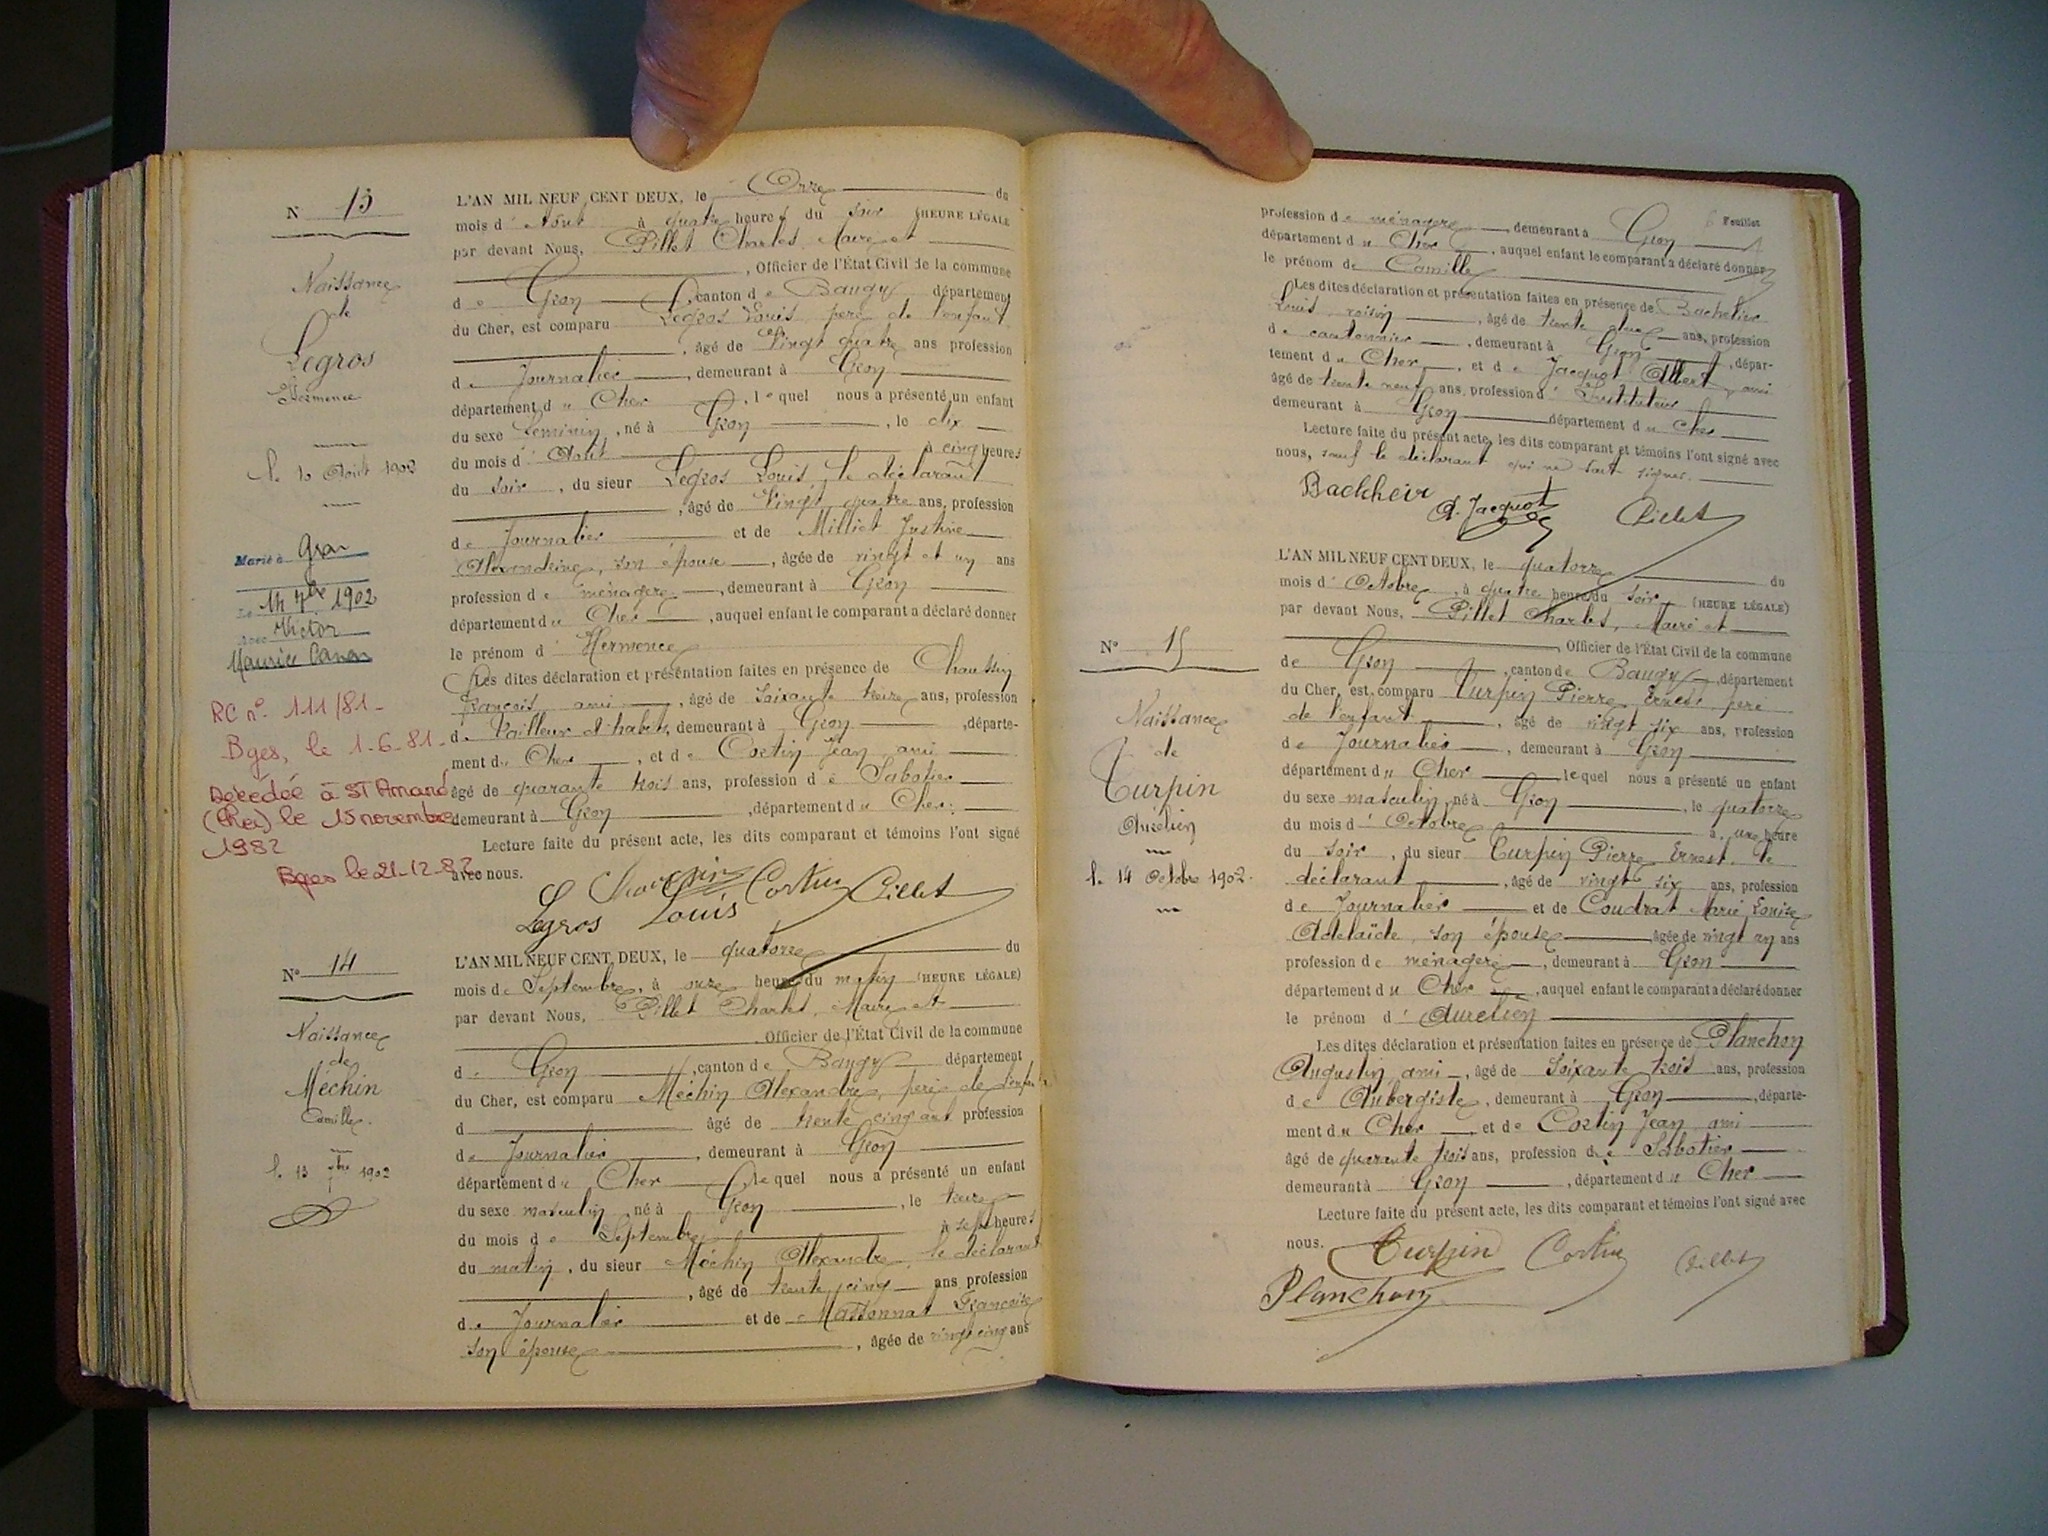 N° 13
Naissance
de
Legros
Hermence
le 10 Août 1902
Marié à Gron
Le 14 7bre 1902
avec Victor
Maurice
RC n° 111/81-
Bges, le 1-6-81-
Décédée à St Amand
(Cher) le 15 novembre
1982
Bges le 21-12-82
L'AN MIL NEUF CENT DEUX, le Onze du
mois d' Août à quatre heures du soir (HEURE LÉGALE
par devant Nous, Pillet Charles, Maire et
, Officier de l'État Civil de la commune
de Gron, canton de Baugy département
du Cher, est comparu Legros Louis, père de l'enfant
, âgé de vingt quatre ans profession
de Journalier, demeurant à Gron
département du Cher, lequel nous a présenté un enfant
du sexe féminin, né à Gron, le dix
du mois d' Août à cinq heures
du soir, du sieur Legros Louis, le déclarant
, âgé de vingt quatre ans, profession
de Journalier et de Milliet Justine
Alexandrine, son épouse, âgée de vingt et un ans
profession de ménagère, demeurant à Gron
département du Cher, auquel enfant le comparant a déclaré donner
le prénom d' Hermence
Les dites déclaration et présentation faites en présence de Chaussin
François, ami, âgé de soixante treize ans, profession
de Tailleur d'habits, demeurant à Gron, départe-
ment du Cher, et de Cortin Jean, ami
âgé de quarante trois ans, profession de Sabotier
demeurant à Gron, département du Cher.
Lecture faite du présent acte, les dits comparant et témoins l'ont signé
avec nous.
Cortin Pillet
Legros Louis
N° 14
Naissance
de
Méchin
Camille.
le 13 7bre 1902
L'AN MIL NEUF CENT DEUX, le quatorze du
mois de Septembre, à onze heures du matin (HEURE LÉGALE)
par devant Nous, Pillet Charles, Maire et
, Officier de l'État Civil de la commune
de Gron, canton de Baugy département
du Cher, est comparu Méchin Alexandre, père de l'enfant
d âgé de trente cinq ans profession
de Journalier, demeurant à Gron
département du Cher, lequel nous a présenté un enfant
du sexe masculin, né à Gron, le treize
du mois de Septembre à sept heures
du matin, du sieur Méchin Alexandre, le déclarant
, âgé de trente cinq ans profession
de Journalier et de Massonnat Françoise
son épouse, âgée de vingt cinq ans
6 Feuillet
profession de ménagère, demeurant à Gron
département du Cher, auquel enfant le comparant a déclaré donner
le prénom de Camille
Les dites déclaration et présentation faites en présence de Bachelier
Louis, voisin, âgé de trente deux ans, profession
de cantonnier, demeurant à Gron, dépar-
tement du Cher, et de Jacquot Albert, ami
âgé de trente neuf ans, profession d' Instituteur
demeurant à Gron département du Cher
Lecture faite du présent acte, les dits comparant et témoins l'ont signé avec
nous, sauf le déclarant qui ne sait signer.
A. Jacquot Pillet
N° 15
Naissance
de
Turpin
Aurélien
le 14 Octobre 1902.
L'AN MIL NEUF CENT DEUX, le quatorze du
mois d' Octobre, à quatre heures du soir (HEURE LÉGALE)
par devant Nous, Pillet Charles, Maire et
, Officier de l'État Civil de la commune
de Gron, canton de Baugy, département
du Cher, est comparu Turpin Pierre Ernest, père
de l'enfant, âgé de vingt six ans, profession
de Journalier, demeurant à Gron
département du Cher lequel nous a présenté un enfant
du sexe masculin, né à Gron, le quatorze
du mois d' Octobre à une heure
du soir, du sieur Turpin Pierre Ernest, le
déclarant, âgé de vingt six ans, profession
de Journalier et de Coudrat Marie Louise
Adelaïde, son épouse âgée de vingt un ans
profession de ménagère, demeurant à Gron
département du Cher, auquel enfant le comparant a déclaré donner
le prénom d' Aurélien
Les dites déclaration et présentation faites en présence de Planchon
Augustin ami, âgé de Soixante trois ans, profession
de Aubergiste, demeurant à Gron, départe-
ment du Cher, et de Cortin Jean, ami
âgé de quarante trois ans, profession de Sabotier
demeurant à Gron, département du Cher
Lecture faite du présent acte, les dits comparant et témoins l'ont signé avec
nous. Turpin Cortin Pillet
Planchon